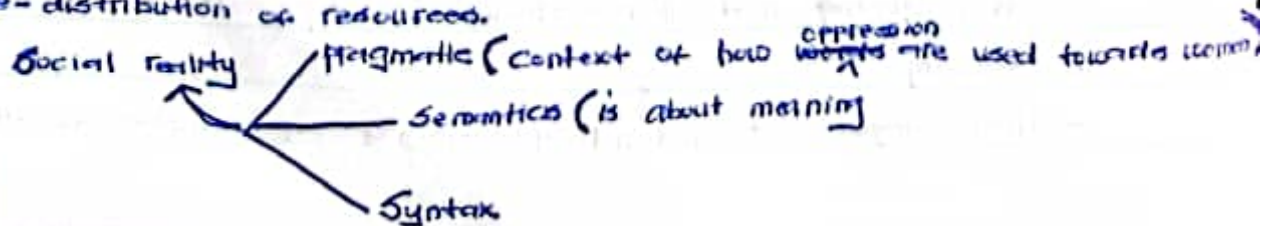 - distribution of resources.
Social reality Pragmatic (Context of how oppression are used towards women)
Semantics (is about meaning
Syntax